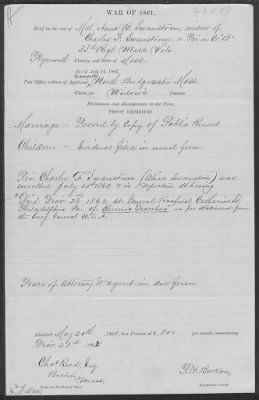 WAR OF 1861.
Brief in the case of Mrs. Ann B. Swanstrom, widow of
Charles F. Swanstrom a Priv. Co. "B"
33d Regt Mass. Vols
Plymouth County, and State of Mass.
Act of July 14, 1862.
Post Office address of Applicant, North Bridgewater Mass.
Claim for Widow's Pension.
Declaration and Identification in due Form.
PROOF EXHIBITED
Marriage - Proved by Copy of Public Record
Children - Evidence filed in usual form
Priv. Charles F. Swanstrom, (Alias Swanston) was
enrolled July 1862, & is reported as having
"Died Decr 23d 1862, at General Hospital Catharine St.
Philadelphia Pa. of Chronic Diarrhoea" as per statement from
the Surg. General U.S.A.
Power of Attorney to agent in due form
Admitted May 20th 186 , to a Pension of $ 8 00 per month, commencing
Decr 23d 1862
Chas Reed, Esq
Boston
Mass.
EXAMINING CLERK.